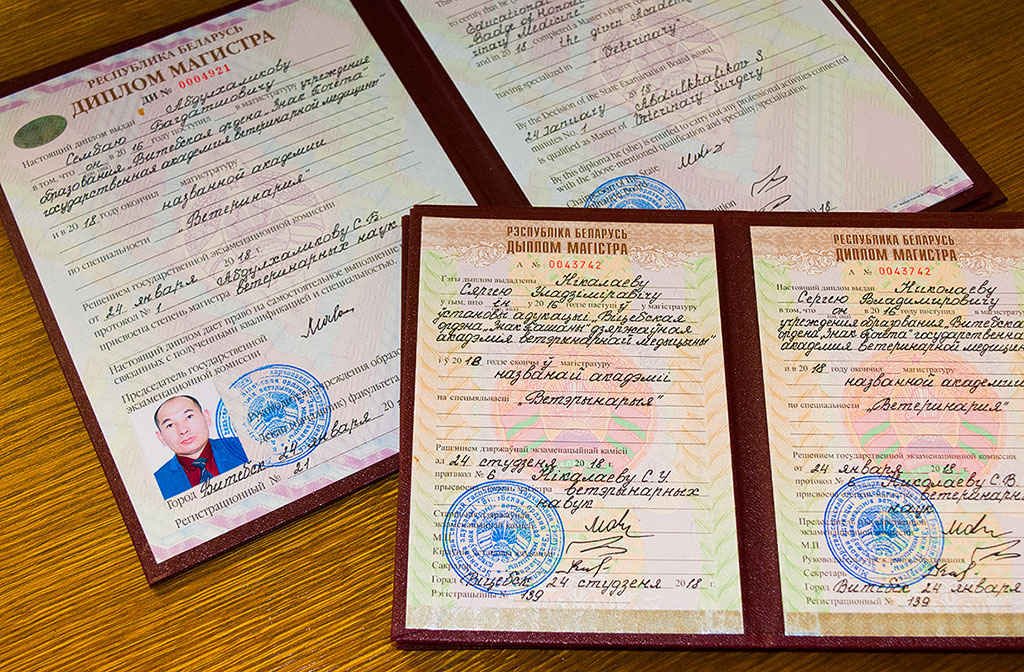 РЕСПУБЛИКА БЕЛАРУСЬ
ДИПЛОМ МАГИСТРА
ДИ № 0004921
Настоящий диплом выдан Абдулхаликову
Сембаю Багдатшовичу
в том, что он в 2016 году поступил в магистратуру учреждение
образования „Витебская ордена „Знак Почёта"
государственная академия ветеринарной медицины"
и в 2018 году окончил магистратуру
названной академии
по специальности „Ветеринария"
Решением государственной экзаменационной комиссии
от 24 января 2018 г.
протокол № 1 Абдулхаликову С.Б.
присвоена степень магистра ветеринарных наук
Настоящий диплом дает право на самостоятельное выполнение
связанных с полученными квалификацией и специальностью.
Председатель государственной
экзаменационной комиссии
факультета
Город Витебск, 24 января
Регистрационный № 21
Educational
"Badge of Honour"
erinary Medicine"
and in 2018 completed a Master's degree
the given academy
having specialized in Veterinary
By the Decision of the State Examination Board
24 January 2018
minutes No. 1 Abdulkhalikov S.
is qualified as Master of Veterinary Surgery
By this diploma he (she) is entitled to carry out any professional activities connected
with the above-mentioned qualification and speciality specialization.
Chairperson of the State
Examination Board
18
РЭСПУБЛІКА БЕЛАРУСЬ
ДЫПЛОМ МАГІСТРА
А № 0043742
Гэты дыплом выдадзены Нікалаеву
Сяргею Уладзіміравічу
у тым, што ён у 2016 годзе паступіў у магістратуру
ўстановы адукацыі „Віцебская
ордэна „Знак Пашаны" дзяржаўная
акадэмія ветэрынарнай медыцыны"
і ў 2018 годзе скончыў магістратуру
названай акадэміі
па спецыяльнасці „Ветэрынарыя"
Рашэннем дзяржаўнай экзаменацыйнай камісіі
ад 24 студзеня 2018 г.
пратакол № 6 Нікалаеву С.У.
прысвоена ступень магістра ветэрынарных
навук
Старшыня дзяржаўнай
экзаменацыйнай камісіі
М.П.
Горад Віцебск 24 студзеня 2018 г.
Рэгістрацыйны № 139
РЕСПУБЛИКА БЕЛАРУСЬ
ДИПЛОМ МАГИСТРА
А № 0043742
Настоящий диплом выдан Николаеву
Сергею Владимировичу
в том, что он в 2016 году поступил в магистратуру
учреждения образования „Витебская
ордена „Знак Почёта" государственная
академия ветеринарной медицины
и в 2018 году окончил магистратуру
названной академии
по специальности „Ветеринария"
Решением государственной экзаменационной комиссии
от 24 января 2018
протокол № 6 Николаеву С.В.
присвоена ветеринарных
наук
Председатель государственной
экзаменационной комиссии
М.П.
Руководитель учреждения образования
Секретарь
Город Витебск 24 января
Регистрационный № 139